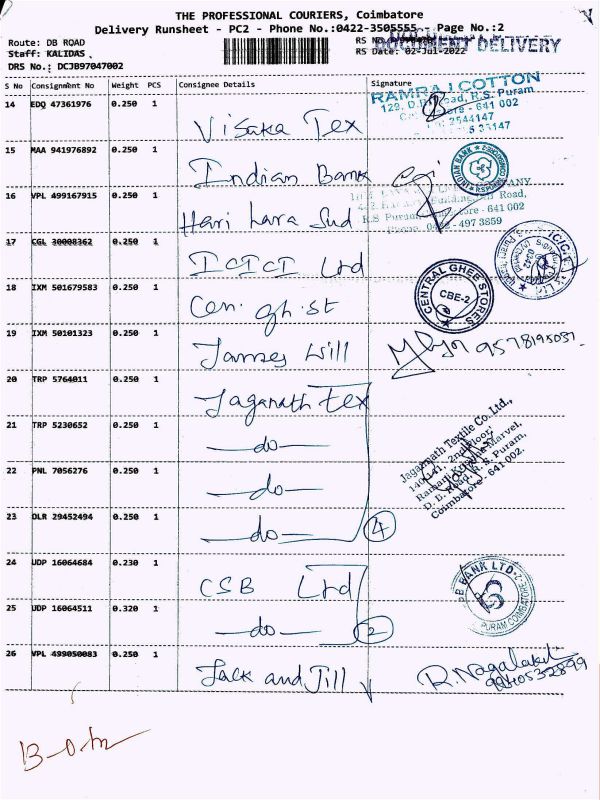 THE PROFESSIONAL COURIERS, Coimbatore
Delivery Runsheet - PC2 - Phone No.:0422-3505555 - Page No.:2
Route: DB ROAD
RS No
Staff: KALIDAS
DOCUMENT DELIVERY
RS Date: 02-Jul-2022
DRS No.: DCJB97047002
S No Consignment No Weight PCS Consignee Details Signature
14 EDQ 47361976 0.250 1 Visaka Tex
RAMRAJ COTTON
R.S. Puram
641 002
2544147
15 MAA 941976892 0.250 1 Indian Bank
INDIAN BANK
16 VPL 499167915 0.250 1 Hari hara Sud
Road,
R.S Puram
641 002
497 3859
17 CGL 30008362 0.250 1 ICICI Ltd
18 IXM 501679583 0.250 1 Cen. gh. st
CENTRAL GHEE STORES
CBE-2
19 IXM 50101323 0.250 1 James Will
9578195031
20 TRP 5764011 0.250 1 Jaganath Tex
21 TRP 5230652 0.250 1 do
22 PNL 7056276 0.250 1 do
23 DLR 29452494 0.250 1 do 4
Jagannath Textile Co. Ltd.,
2nd Floor,
Marvel,
R.S. Puram,
Coimbatore - 641 002.
24 UDP 16064684 0.230 1 CSB Ltd
25 UDP 16064511 0.320 1 do 2
BANK LTD
PURAM COIMBATORE
26 VPL 499050083 0.250 1 Jack and Jill
R. Nagalakshi